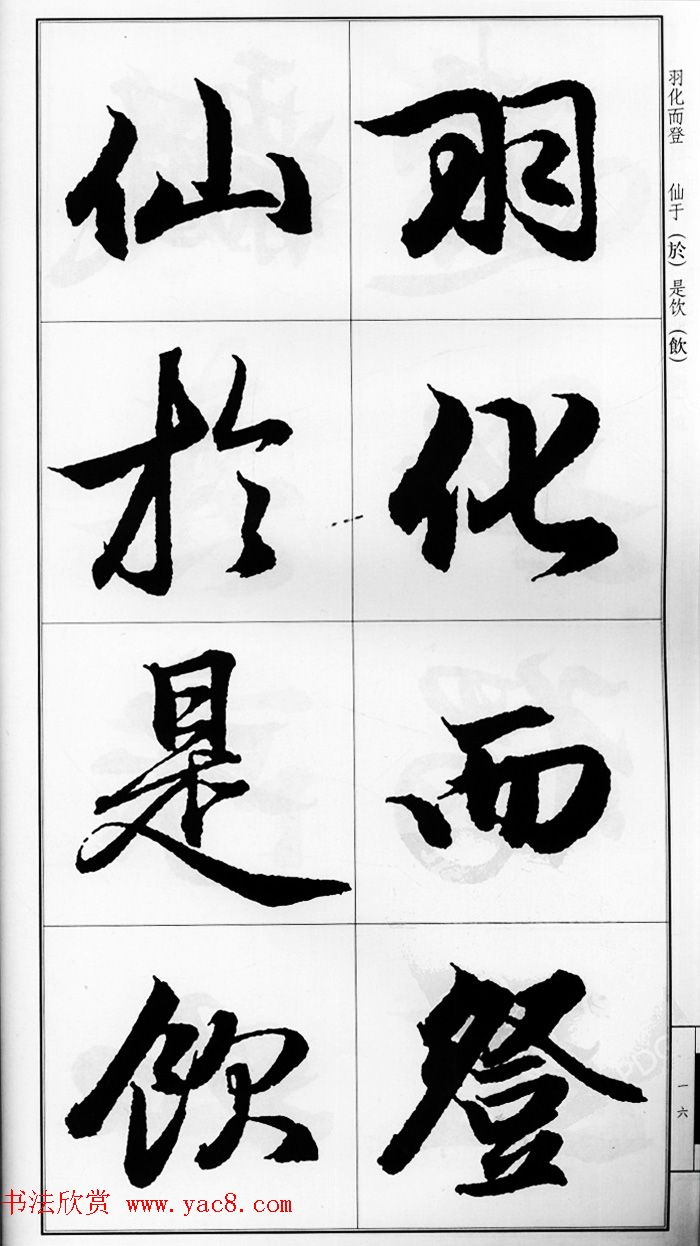 羽化而登
仙於是飲
羽化而登 仙于(於)是饮(飲)
一六
书法欣赏 www.yac8.com
PDG